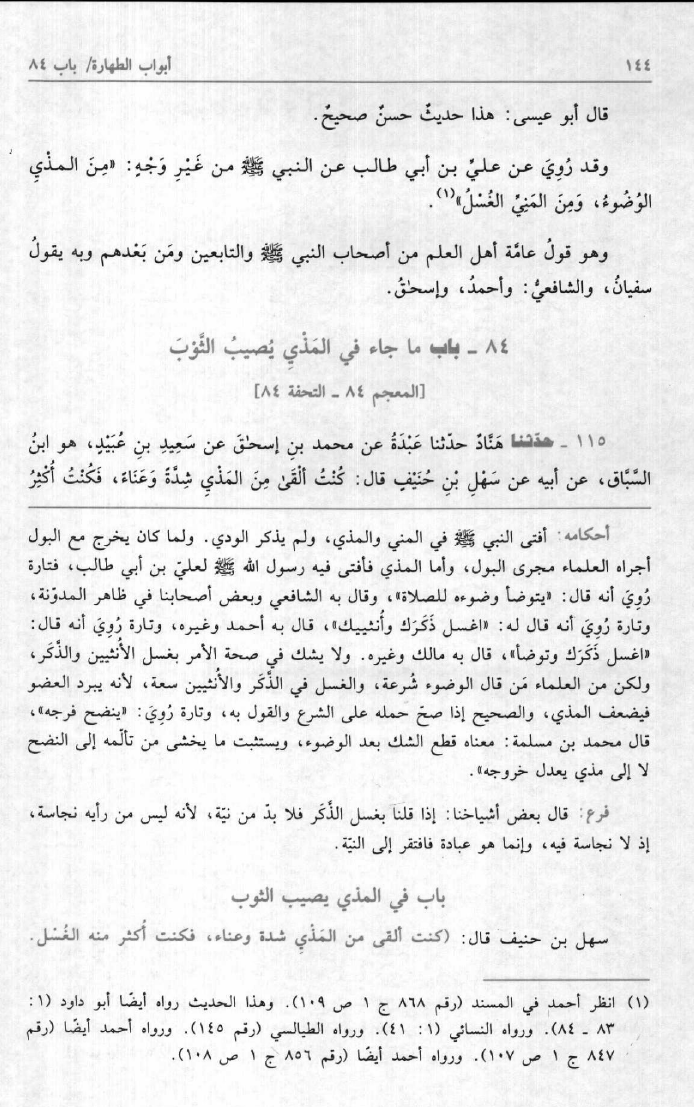 ١٤٤
أبواب الطهارة/ باب ٨٤
قال أبو عيسى: هذا حديثٌ حسنٌ صحيحٌ.
وقد رُوِيَ عن عليِّ بن أبي طالب عن النبي ﷺ من غَيْرِ وَجْهٍ: «مِنَ المذْيِ
الوُضُوءُ، وَمِنَ المَنِيِّ الغُسْلُ»(١).
وهو قولُ عامَّة أهل العلم من أصحاب النبي ﷺ والتابعين ومَن بَعْدهم وبه يقولُ
سفيانُ، والشافعيُّ: وأحمدُ، وإسحٰقُ.
٨٤ ـ باب ما جاء في المَذْيِ يُصيبُ الثَّوْبَ
[المعجم ٨٤ ـ التحفة ٨٤]
١١٥ ـ حدّثنا هَنَّادٌ حدّثنا عَبْدَةُ عن محمد بنِ إسحٰقَ عن سَعِيدِ بنِ عُبَيْدٍ، هو ابنُ
السَّبَّاق، عن أبيه عن سَهْلِ بْنِ حُنَيْفٍ قال: كُنْتُ ألْقَىٰ مِنَ المَذْيِ شِدَّةً وَعَنَاءً، فَكُنْتُ أُكْثِرُ
أحكامه: أفتى النبي ﷺ في المني والمذي، ولم يذكر الودي. ولما كان يخرج مع البول
أجراه العلماء مجرى البول، وأما المذي فأفتى فيه رسول الله ﷺ لعليّ بن أبي طالب، فتارة
رُوِيَ أنه قال: «يتوضأ وضوءه للصلاة»، وقال به الشافعي وبعض أصحابنا في ظاهر المدوّنة،
وتارة رُوِيَ أنه قال له: «اغسل ذَكَرَك وأُنثييك»، قال به أحمد وغيره، وتارة رُوِيَ أنه قال:
«اغسل ذَكَرَك وتوضأ»، قال به مالك وغيره. ولا يشك في صحة الأمر بغسل الأُنثيين والذَّكَر،
ولكن من العلماء مَن قال الوضوء شُرعة، والغسل في الذَّكَر والأُنثيين سعة، لأنه يبرد العضو
فيضعف المذي، والصحيح إذا صحّ حمله على الشرع والقول به، وتارة رُوِيَ: «ينضح فرجه»،
قال محمد بن مسلمة: معناه قطع الشك بعد الوضوء، ويستثبت ما يخشى من تألّمه إلى النضح
لا إلى مذي يعدل خروجه».
فرع: قال بعض أشياخنا: إذا قلنا بغسل الذَّكَر فلا بدّ من نيّة، لأنه ليس من رأيه نجاسة،
إذ لا نجاسة فيه، وإنما هو عبادة فافتقر إلى النيّة.
باب في المذي يصيب الثوب
سهل بن حنيف قال: (كنت ألقى من المَذْيِ شدة وعناء، فكنت أُكثر منه الغُسْل.
(١) انظر أحمد في المسند (رقم ٨٦٨ ج ١ ص ١٠٩). وهذا الحديث رواه أيضًا أبو داود (١:
٨٣ ـ ٨٤). ورواه النسائي (١: ٤١). ورواه الطيالسي (رقم ١٤٥). ورواه أحمد أيضًا (رقم
٨٤٧ ج ١ ص ١٠٧). ورواه أحمد أيضًا (رقم ٨٥٦ ج ١ ص ١٠٨).